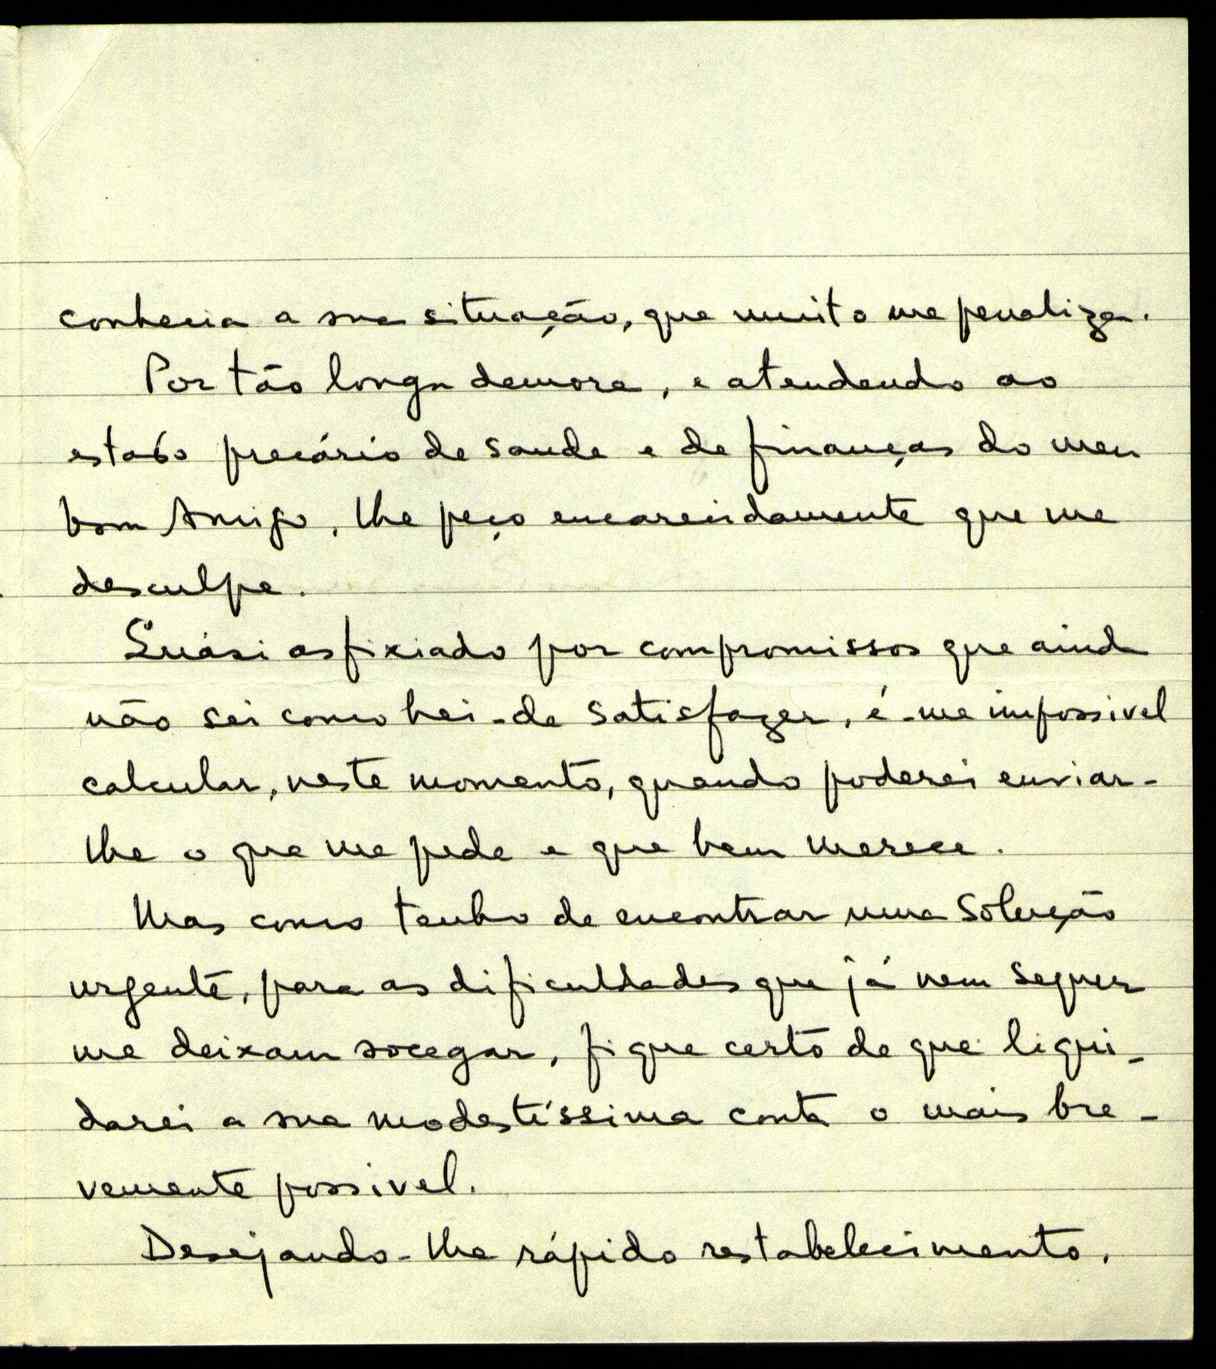 conhecia a sua situação, que muito me penaliza.
Por tão longa demora, e atendendo ao
estado precário de saude e de finanças do meu
bom Amigo, lhe peço encarecidamente que me
desculpe.
Quási asfixiado por compromissos que aind
não sei como hei-de satisfazer, é-me impossivel
calcular, neste momento, quando poderei enviar-
lhe o que me pede e que bem merece.
Mas como tenho de encontrar uma solução
urgente, para as dificuldades que já nem sequer
me deixam socegar, fique certo de que liqui-
darei a sua modestíssima conta o mais bre-
vemente possivel.
Desejando-lhe rápido restabelecimento,